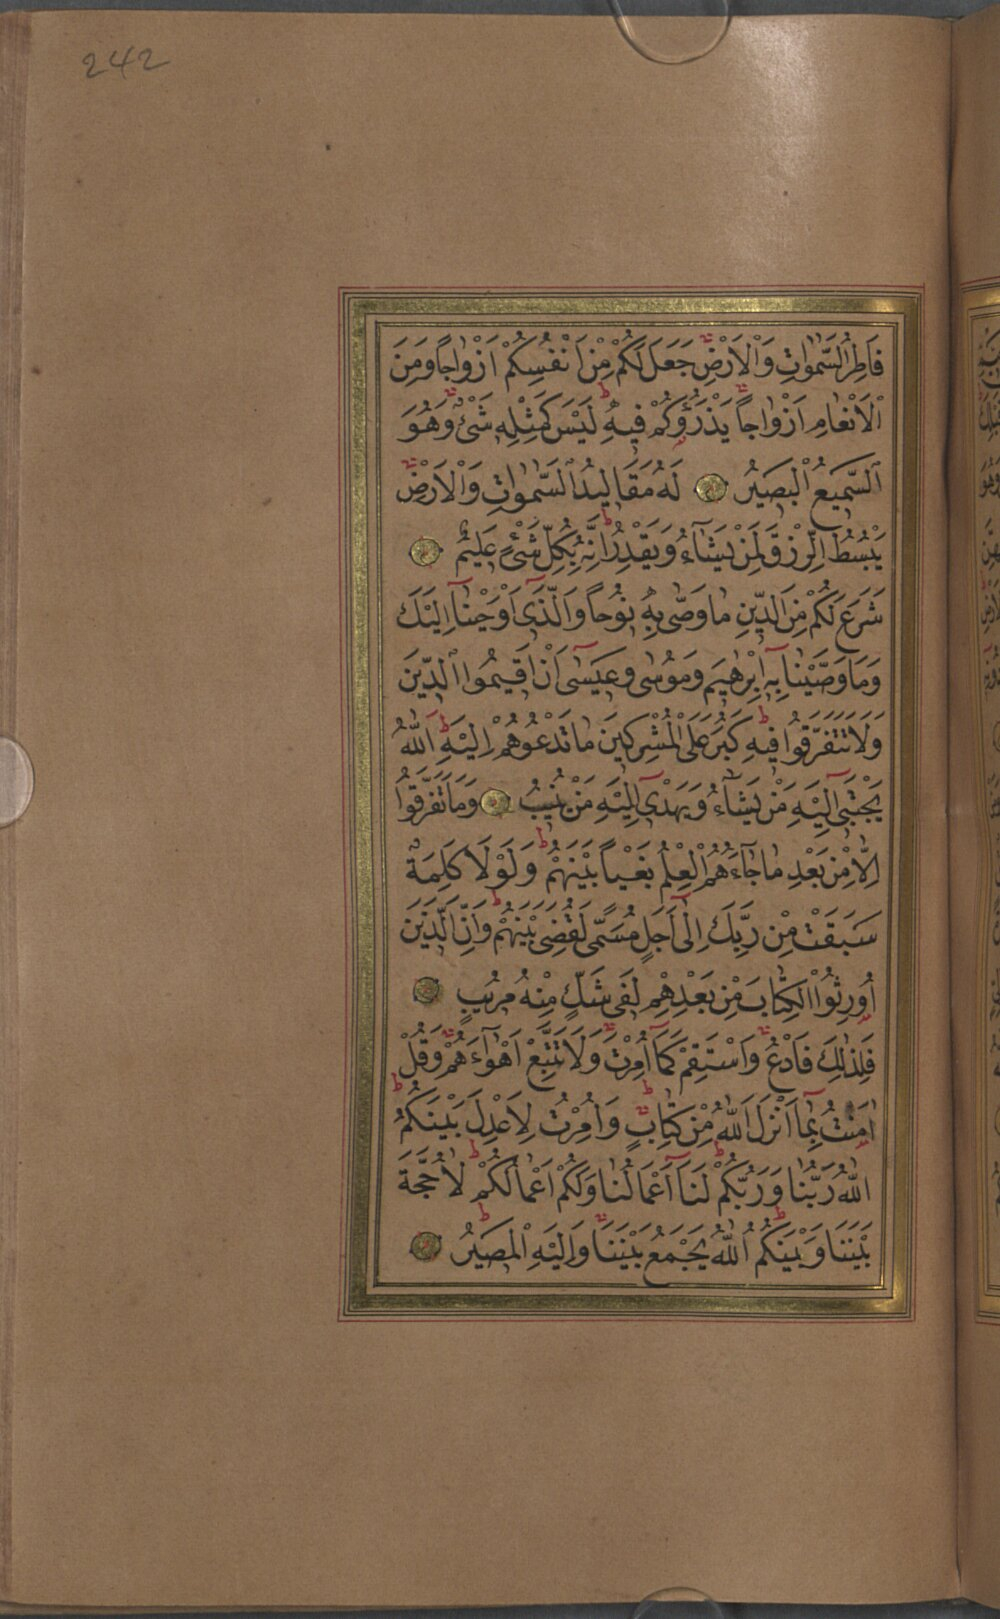 242
فَاطِرُ السَّمٰوَاتِ وَالْاَرْضِۜ جَعَلَ لَكُمْ مِنْ اَنْفُسِكُمْ اَزْوٰاجًا وَمِنَ
الْاَنْعٰامِ اَزْوٰاجًاۜ يَذْرَؤُ۬كُمْ فيهِۜ لَيْسَ كَمِثْلِه۪ شَيْءٌۜ وَهُوَ
السَّميعُ الْبَصيرُ لَهُ مَقَاليدُ السَّمٰوَاتِ وَالْاَرْضِۜ
يَبْسُطُ الرِّزْقَ لِمَنْ يَشَٓاءُ وَيَقْدِرُۜ اِنَّهُ بِكُلِّ شَيْءٍ عَليمٌ
شَرَعَ لَكُمْ مِنَ الدّينِ مٰا وَصّٰى بِه۪ نُوحًا وَالَّذَيٓ اَوْحَيْنٰٓا اِلَيْكَ
وَمَا وَصَّيْنٰا بِه۪ٓ اِبْرٰهيمَ وَمُوسٰى وَعيسٰىٓ اَنْ اَقيمُوا الدّينَ
وَلَا تَتَفَرَّقُوا فيهِۜ كَبُرَ عَلَى الْمُشْرِكينَ مٰا تَدْعُوهُمْ اِلَيْهِۜ اَللّٰهُ
يَجْتَبيٓ اِلَيْهِ مَنْ يَشَٓاءُ وَيَهْديٓ اِلَيْهِ مَنْ يُنيبُ وَمَا تَفَرَّقُٓوا
اِلّٰا مِنْ بَعْدِ مٰا جَٓاءَهُمُ الْعِلْمُ بَغْيًا بَيْنَهُمْۜ وَلَوْلَا كَلِمَةٌ
سَبَقَتْ مِنْ رَبِّكَ اِلٰٓى اَجَلٍ مُسَمًّى لَقُضِيَ بَيْنَهُمْۜ وَاِنَّ الَّذينَ
اُورِثُوا الْكِتٰابَ مِنْ بَعْدِهِمْ لَفي شَكٍّ مِنْهُ مُريبٍ
فَلِذٰلِكَ فَادْعُۚ وَاسْتَقِمْ كَمَٓا اُمِرْتَۚ وَلَا تَتَّبِعْ اَهْوَٓاءَهُمْۚ وَقُلْ
اٰمَنْتُ بِمَٓا اَنْزَلَ اللّٰهُ مِنْ كِتٰابٍۚ وَاُمِرْتُ لِاَعْدِلَ بَيْنَكُمُۜ
اللّٰهُ رَبُّنٰا وَرَبُّكُمْۜ لَنَٓا اَعْمَالُنٰا وَلَكُمْ اَعْمٰالُكُمْۜ لٰا حُجَّةَ
بَيْنَنَا وَبَيْنَكُمُۜ اللّٰهُ يَجْمَعُ بَيْنَنَاۚ وَاِلَيْهِ الْمَصيرُۜ